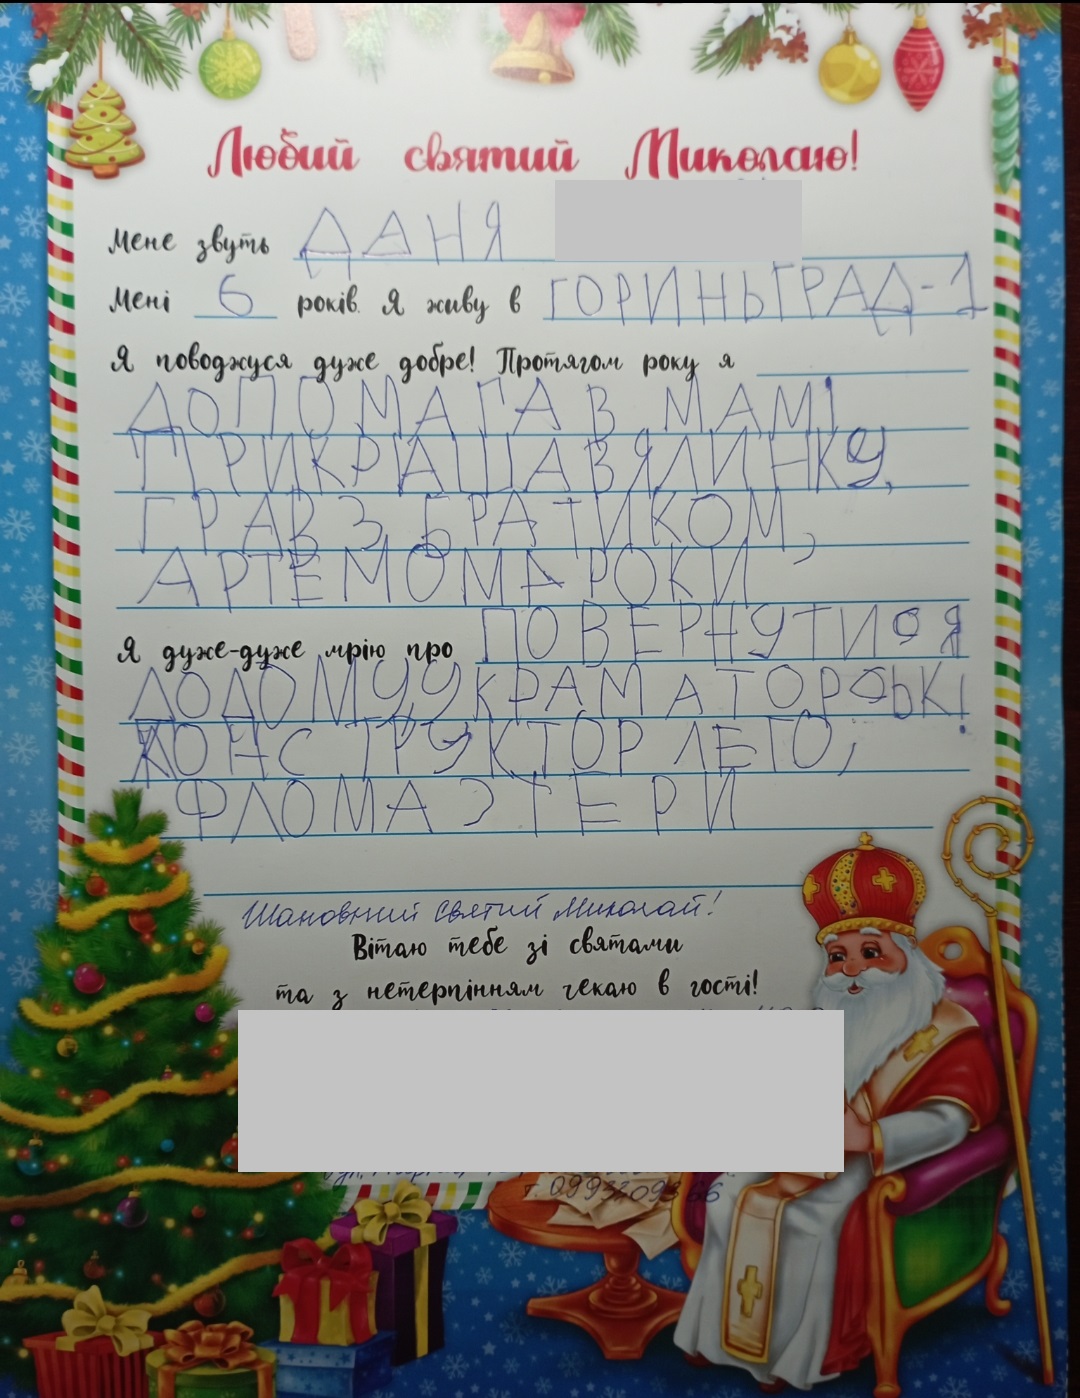 Любий святий Миколаю!
Мене звуть ДАНЯ
Мені 6 років. Я живу в ГОРИНЬГРАД-1
Я поводжуся дуже добре! Протягом року я
ДОПОМАГАВ МАМІ
ПРИКРАШАВ ЯЛИНКУ,
ГРАВ З БРАТИКОМ,
АРТЕМОМ 4 РОКИ
Я дуже-дуже мрію про ПОВЕРНУТИСЯ
ДОДОМУ У КРАМАТОРСЬК!
КОНСТРУКТОР ЛЕГО,
ФЛОМАЭТЕРИ
Шановний Святий Миколай!
Вітаю тебе зі святами
та з нетерпінням чекаю в гості!